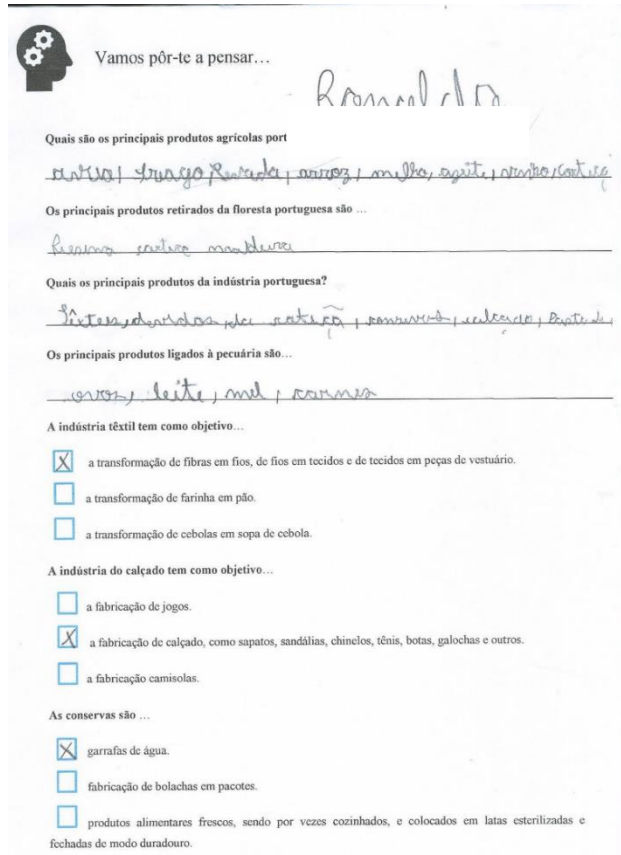 Vamos pôr-te a pensar...
Ronaldo
Quais são os principais produtos agrícolas port
arroz, milho, azeite, vinho, cortiç
Os principais produtos retirados da floresta portuguesa são ...
Resina
Quais os principais produtos da indústria portuguesa?
Têxteis,
Os principais produtos ligados à pecuária são...
ovos, leite, mel, carnes
A indústria têxtil tem como objetivo...
X a transformação de fibras em fios, de fios em tecidos e de tecidos em peças de vestuário.
a transformação de farinha em pão.
a transformação de cebolas em sopa de cebola.
A indústria do calçado tem como objetivo...
a fabricação de jogos.
X a fabricação de calçado, como sapatos, sandálias, chinelos, tênis, botas, galochas e outros.
a fabricação camisolas.
As conservas são ...
X garrafas de água.
fabricação de bolachas em pacotes.
produtos alimentares frescos, sendo por vezes cozinhados, e colocados em latas esterilizadas e
fechadas de modo duradouro.